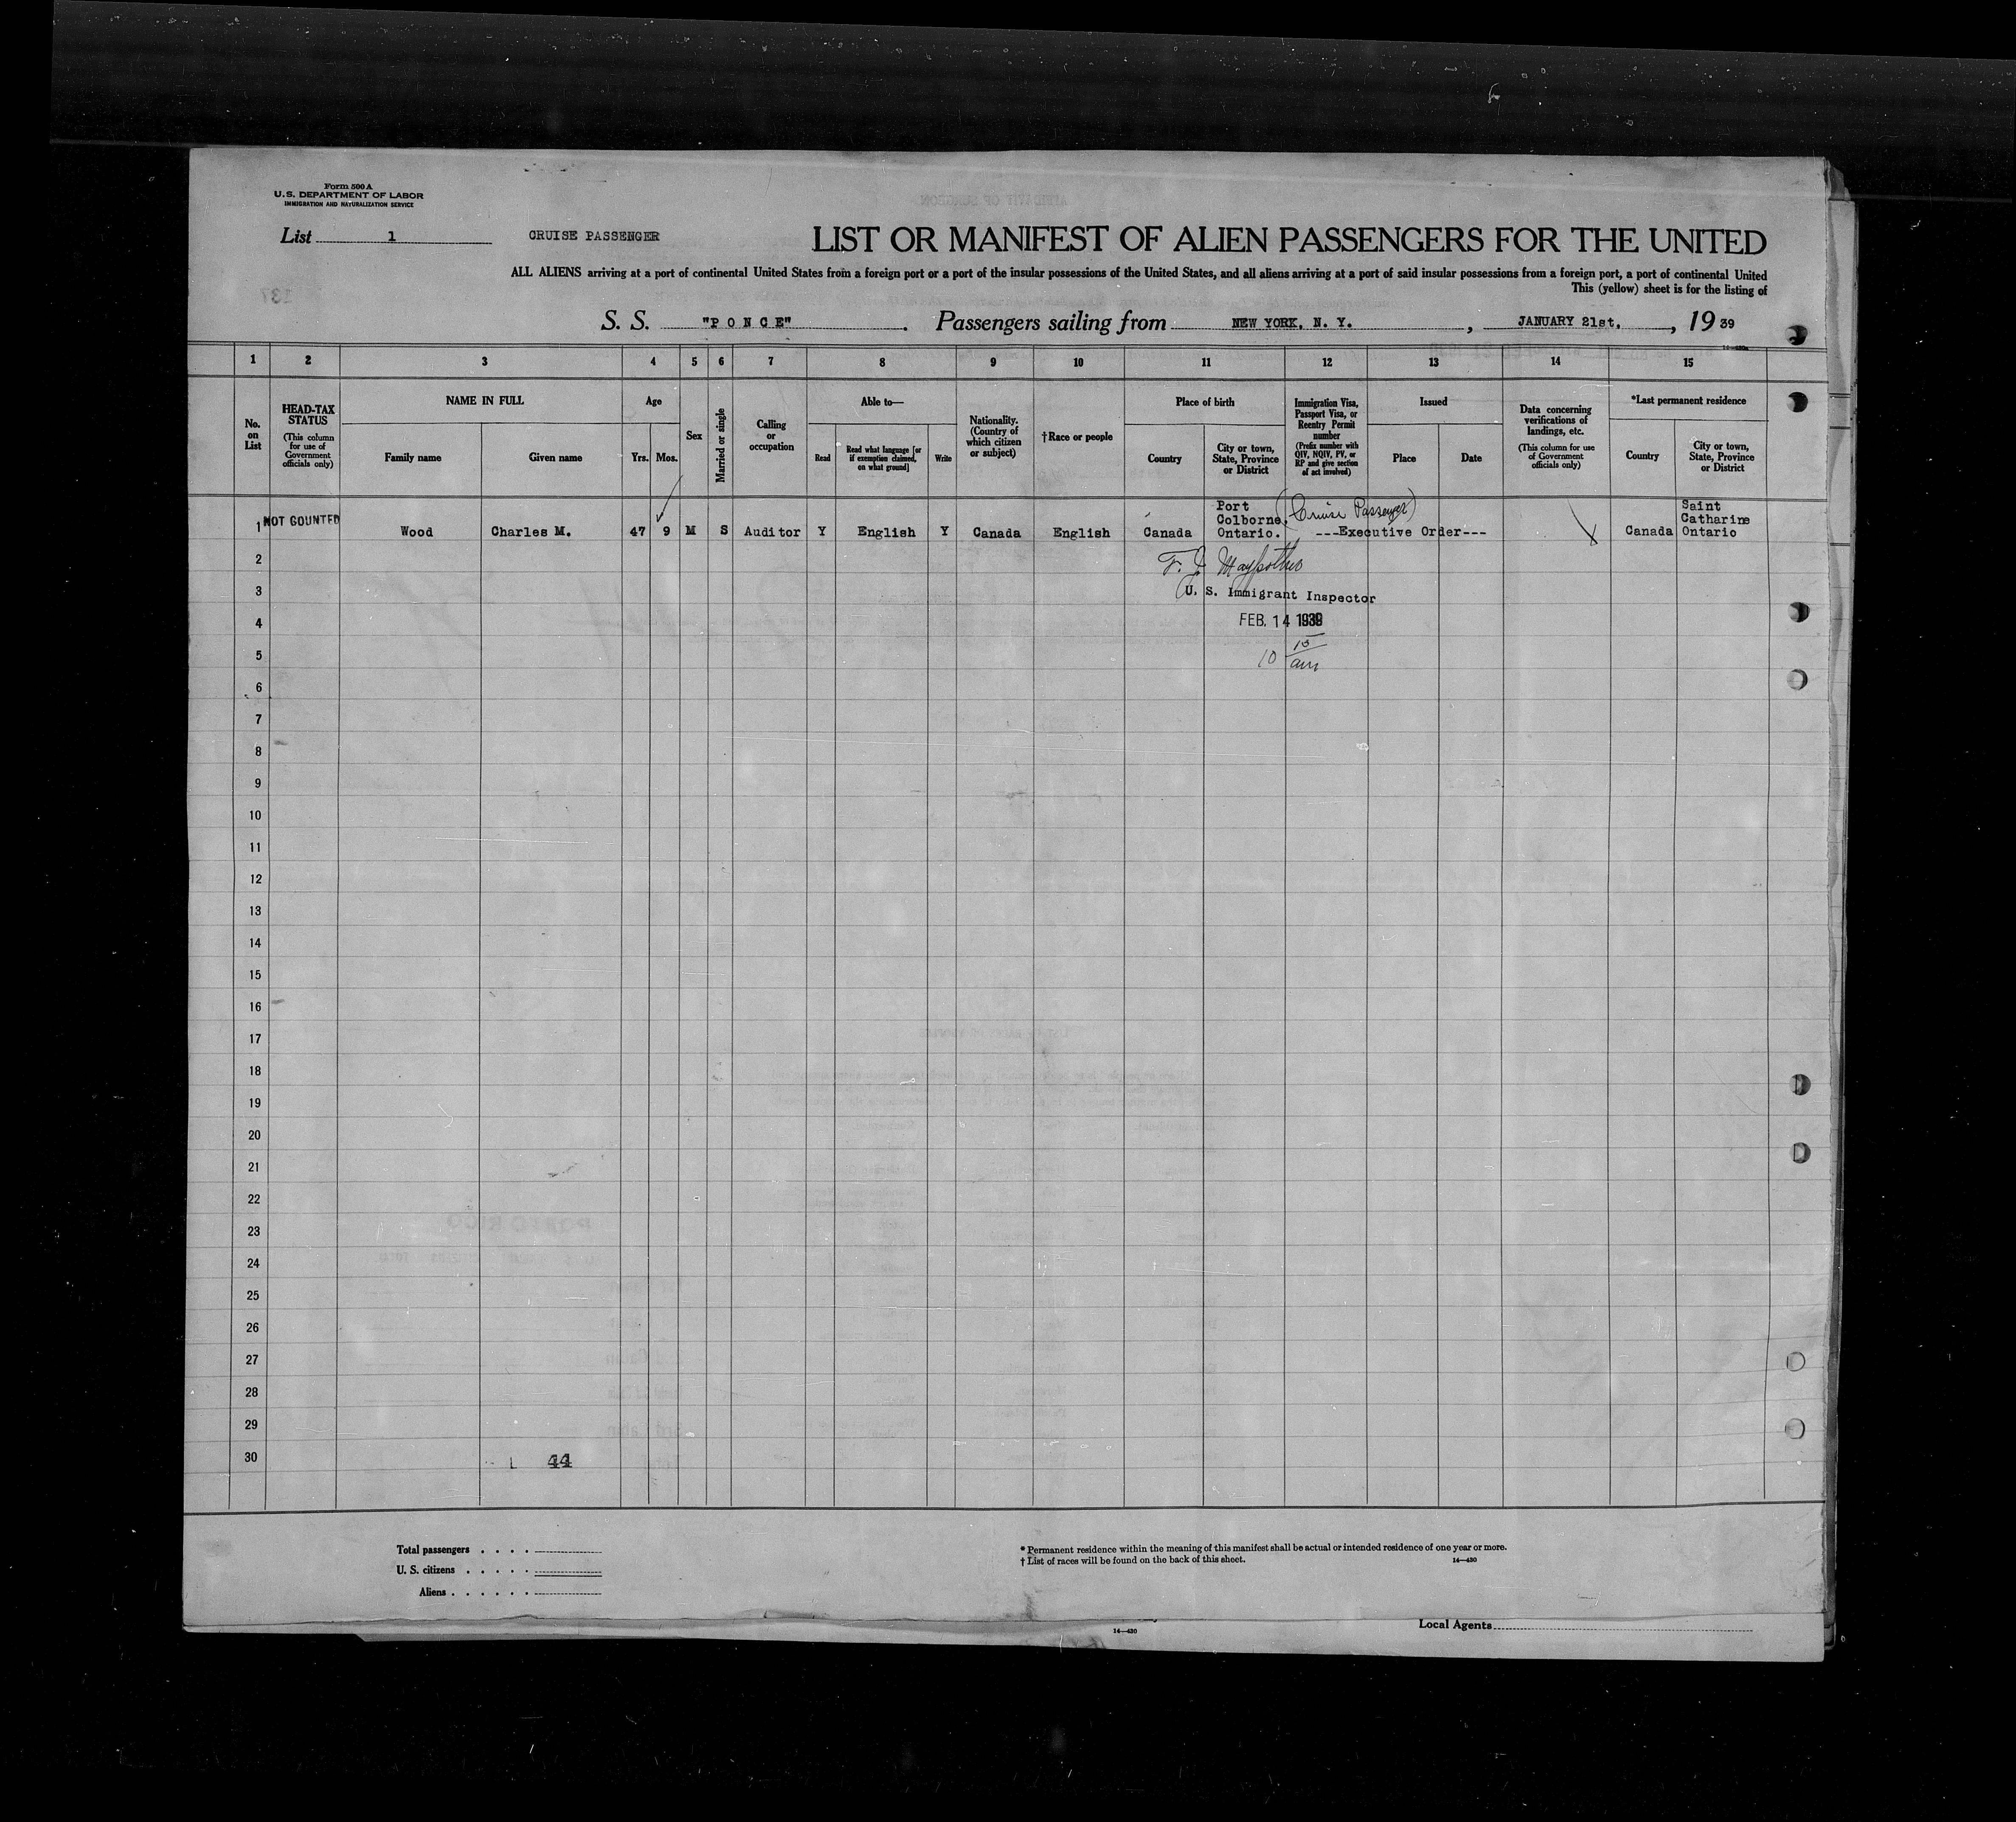 Form 500 A
U.S. DEPARTMENT OF LABOR
IMMIGRATION AND NATURALIZATION SERVICE
List 1 CRUISE PASSENGER
LIST OR MANIFEST OF ALIEN PASSENGERS FOR THE UNITED
ALL ALIENS arriving at a port of continental United States from a foreign port or a port of the insular possessions of the United States, and all aliens arriving at a port of said insular possessions from a foreign port, a port of continental United
This (yellow) sheet is for the listing of
S. S. "P O N C E" . Passengers sailing from NEW YORK, N. Y. , JANUARY 21st. , 19 39
1 2 3 4 5 6 7 8 9 10 11 12 13 14 15
No. on List
HEAD-TAX STATUS
(This column for use of Government officials only)
NAME IN FULL
Family name
Given name
Age
Yrs. Mos.
Sex
Married or single
Calling or occupation
Able to—
Read
Read what language [or if exemption claimed, on what ground]
Write
Nationality. (Country of which citizen or subject)
†Race or people
Place of birth
Country
City or town, State, Province or District
Immigration Visa, Passport Visa, or Reentry Permit number
(Prefix number with QIV, NQIV, PV, or RP and give section of act involved)
Issued
Place
Date
Data concerning verifications of landings, etc.
(This column for use of Government officials only)
*Last permanent residence
Country
City or town, State, Province or District
1 NOT COUNTED Wood Charles M. 47 9 M S Auditor Y English Y Canada English Canada Port Colborne, Ontario. (Cruise Passenger) ---Executive Order--- Canada Saint Catharine Ontario
2
3 U. S. Immigrant Inspector
4 FEB. 14 1939
5 10 15 am
6
7
8
9
10
11
12
13
14
15
16
17
18
19
20
21
22
23
24
25
26
27
28
29
30
44
Total passengers
U. S. citizens
Aliens
* Permanent residence within the meaning of this manifest shall be actual or intended residence of one year or more.
† List of races will be found on the back of this sheet. 14—430
14—430
Local Agents